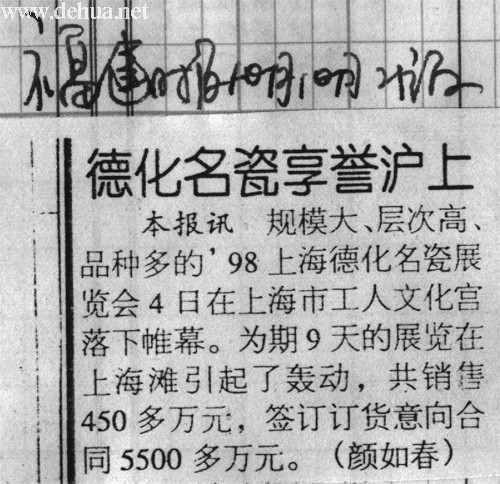 www.dehua.net
福建时报10月10日
德化名瓷享誉沪上
本报讯 规模大、层次高、
品种多的'98上海德化名瓷展
览会4日在上海市工人文化宫
落下帷幕。为期9天的展览在
上海滩引起了轰动,共销售
450多万元,签订订货意向合
同5500多万元。(颜如春)